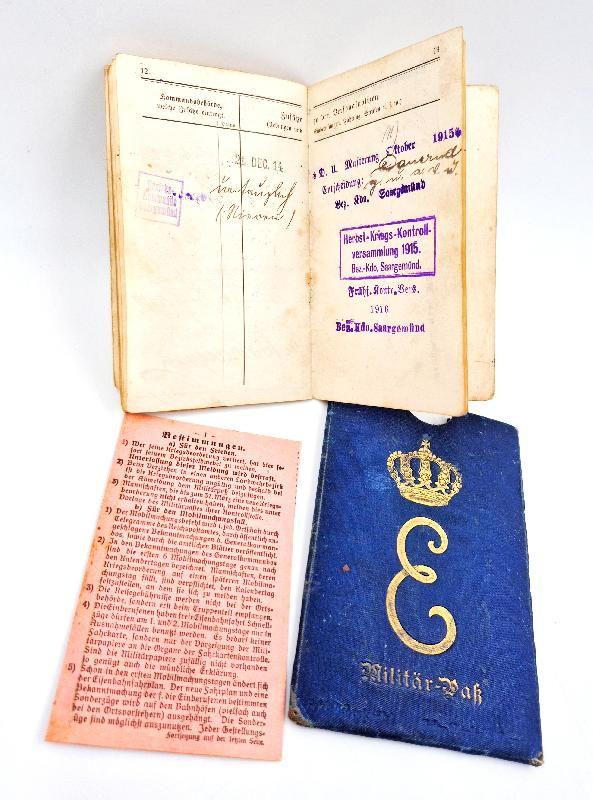 12.
Kommandobehörde,
welche Zusätze einträgt.
Zusätze
21. DEZ. 14
untauglich
(Nieren)
Saargemünd
13
1915
D. U. Musterung Oktober
Entscheidung: Dauernd
g. u. a. v. J.
Bez. Kdo. Saargemünd
Herbst-Kriegs-Kontroll-
versammlung 1915.
Bez.-Kdo. Saargemünd.
Frühj. Kontr. Vers.
1916
Bez. Kdo. Saargemünd
— 1 —
Bestimmungen.
a) Für den Frieden.
1) Wer seine Kriegsbeorderung verliert, hat dies so-
fort seinem Bezirksfeldwebel zu melden.
Unterlassung dieser Meldung wird bestraft.
2) Beim Verziehen in einen anderen Landwehrbezirk
ist die Kriegsbeorderung ungültig und deshalb bei
der Abmeldung dem Militärpaß beizufügen.
3) Mannschaften, die bis zum 31. März eine neue Kriegs-
beorderung nicht erhalten haben, melden dies unter
Vorlage des Militärpasses ihrer Kontrollstelle.
b) Für den Mobilmachungsfall.
1) Der Mobilmachungsbefehl wird i. jed. Ortschaft durch
Telegramme des Reichspostamtes, durch öffentlich an-
geschlagene Bekanntmachungen d. Generalkomman-
dos, sowie durch die amtlichen Blätter veröffentlicht.
2) In den Bekanntmachungen des Generalkommandos
sind die ersten 6 Mobilmachungstage genau nach
den Kalendertagen bezeichnet. Mannschaften, deren
Kriegsbeorderung auf einen späteren Mobilma-
chungstag fällt, sind verpflichtet, den Kalendertag
festzustellen, an dem sie sich zu melden haben.
3) Die Reisegebührnisse werden nicht bei der Orts-
behörde, sondern erst beim Truppenteil empfangen.
4) Die Einberufenen haben freie Eisenbahnfahrt. Schnell-
züge dürfen am 1. und 2. Mobilmachungstage nur in
Ausnahmefällen benutzt werden. Es bedarf keiner
Fahrkarte, sondern nur der Vorzeigung der Mili-
tärpapiere an die Organe der Fahrkartenkontrolle.
Sind die Militärpapiere zufällig nicht vorhanden
so genügt auch die mündliche Erklärung.
5) Schon in den ersten Mobilmachungstagen ändert sich
der Eisenbahnfahrplan. Der neue Fahrplan und eine
Bekanntmachung der f. die Einberufenen bestimmten
Sonderzüge wird auf den Bahnhöfen (vielfach auch
bei den Ortsvorstehern) ausgehängt. Die Sonder-
züge sind möglichst auszunutzen. Jeder Gestellungs-
Fortsetzung auf der letzten Seite.
E
Militär-Paß